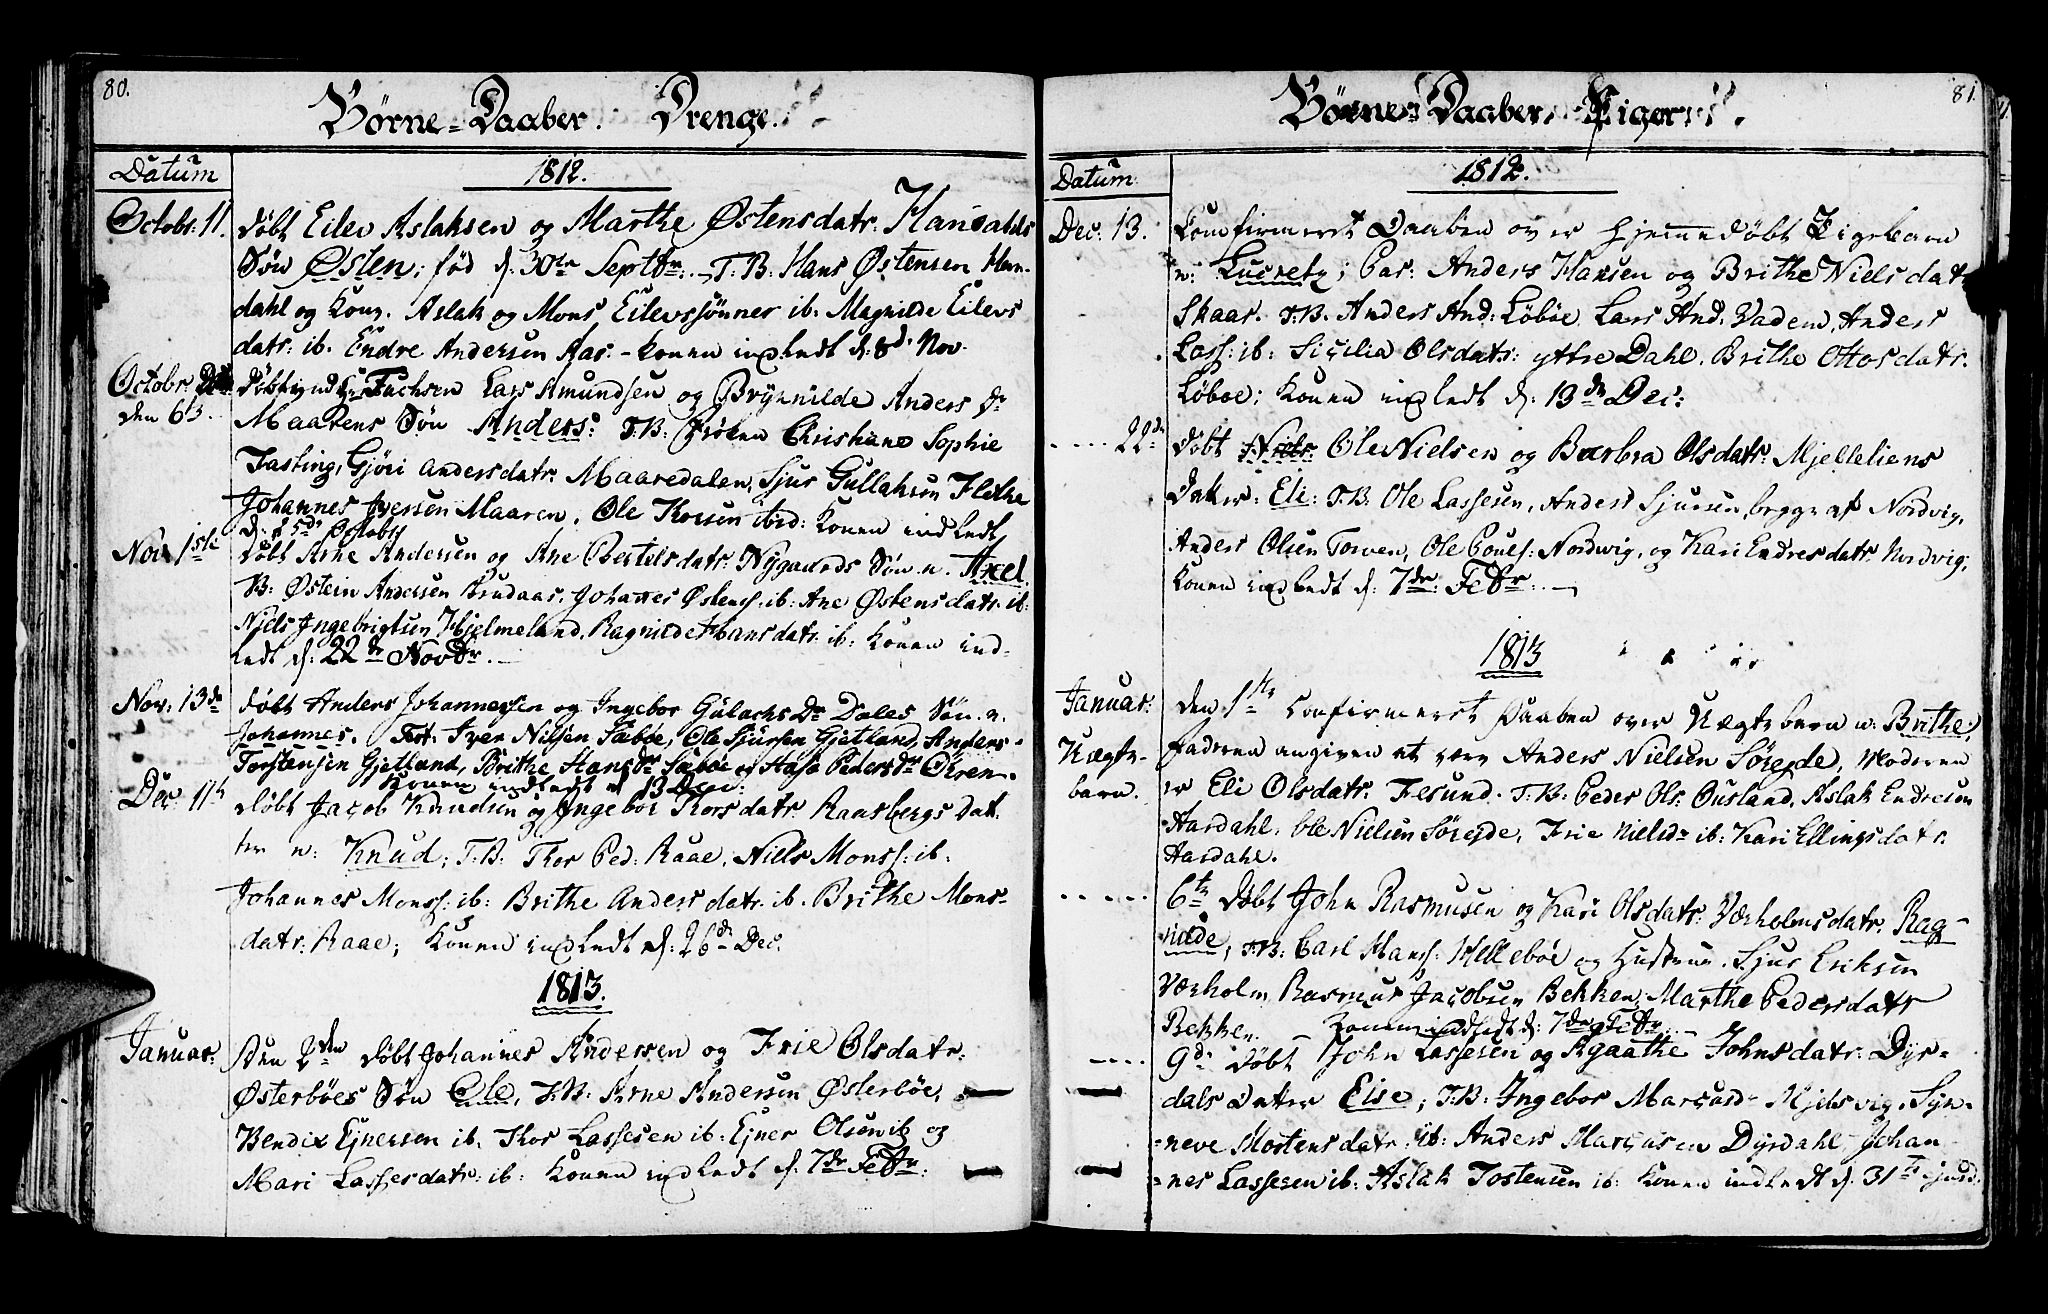 80.
Børne-Daaber. Drenge.
Datum
1812.
Octobr: 11. døbt Eilev Aslaksen og Marthe Østensdatr. Handahls
Søn Østen; fød d: 30te Septbr: T:B: Hans Østensen Han-
dahl og Kone. Aslak og Mons Eilevssønner ib: Magnilde Eilevs
datr: ib. Endre Andersen Aas. - Konen indledt d: 8d Nov.
Octobr: Lars Amundsen og Brynnilde Anders Dr
den 6 Maarens Søn Anders: T:B: Frøken Christiane Sophie
Fasting, Gjøri Andersdatr. Maaredalen, Sjur Gullaksen Flethe
Johannes Iversen Maaren. Ole Thorsen ibid: Konen indledt
d: Octobr
Nov. 1ste døbt Arne Andersen og Ane Bertelsdatr: Nÿgaards Søn n. Axel
B: Østein Andersen Johannes Østens: ib: Ane Østensdatr: ib:
Niels Ingebrigtsen Hjelmeland, Ragnilde Hansdatr: ib: Konen ind-
ledt d: 22de Novbr.
Nov: 13de døbt Anders Johannessen og Ingebor Gulachs Dr Dales Søn n.
Johannes. Test. Iver Nilsen Sæbøe, Ole Sjursen Gjetland, Anders
Torstensen Gjetland, Brithe Hans Dr Sæbøe og Aase Peders Dr Øiren.
Konen indledt d 13 Dec:
Dec: 11te døbt Jacob Knudsen og Ingebor Thorsdatr: Raasbergs Dat-
ter n: Knud; T:B: Thor Ped: Raae, Niels Monss: ib.
Johannes Monss: ib: Brithe Andersdatr: ib. Brithe Mons-
datr: Raae; Konen indledt d: 26de Dec.
1813.
Januar: Den 2den døbt Johannes Andersen og Frie Olsdatr:
Østerbøes Søn Ole, T:B: Arne Andersen Østerbøe,
Bendix Ejnersen ib. Thor Lassesen ib: Ejner Olsen ib og
Mari Lassesdatr: ib: Konen indledt d: 7de Febr.
81.
Børne-Daaber. Piger.
Datum.
1812.
Dec: 13. Confirmeret Daaben over hjemmedøbt Pigebarn
n: Par: Anders Hansen og Brithe Nielsdatr
Skaar. T:B. Anders And: Løbøe. Lars And. Vadem, Anders
Lass: ib: Sicilia Olsdatr: yttre Dahl. Brithe Ottosdatr.
Løbøe; Konen indledt d: 13de Dec:
22de døbt Ole Nielsen og Barbra Olsdatr: Mjelleliens
Datter: Eli: T:B: Ole Lassesen, Anders Sjursen, begge af Nordvig,
Anders Olsen Torven, Ole Pouls: Nordvig, og Kari Endresdatr Nordvig,
Konen indledt d: 7de: Febr.
1813
Januar: den 1ste Confirmeret Daaben over Uægte barn n: Brithe;
Uægte- Faderen angiven at være Anders Nielsen Sørejde, Moderen
barn. er Eli Olsdatr. Fesund. T:B: Peder Ols: Ousland, Aslak Endresen
Hardahl. Ole Nielsen Sørejde, Frie Nielsdr ib: Kari Ellingsdatr.
Hardahl.
6te Døbt John Rasmusen og Kari Olsdatr: Værholmsdatr. Rag-
nilde, T:B: Carl Hanss: Hellebøe og Hustrue. Sjur Eriksen
Værholm, Rasmus Jacobsen Bekken, Marthe Pedersdatr
Bekken. Konen indledt d: 7de Febr.
9d: Døbt John Lassesen og Agaathe Johnsdatr: Dyr-
dals Datter Else; T:B: Ingebor Marcusdr Mjelsvig. Syn-
neve Mortensdatr: ib: Anders Marcusen Dyrdahl. Johan-
nes Lassesen ib: Aslak Tostensen ib: Konen indledt d: 31te